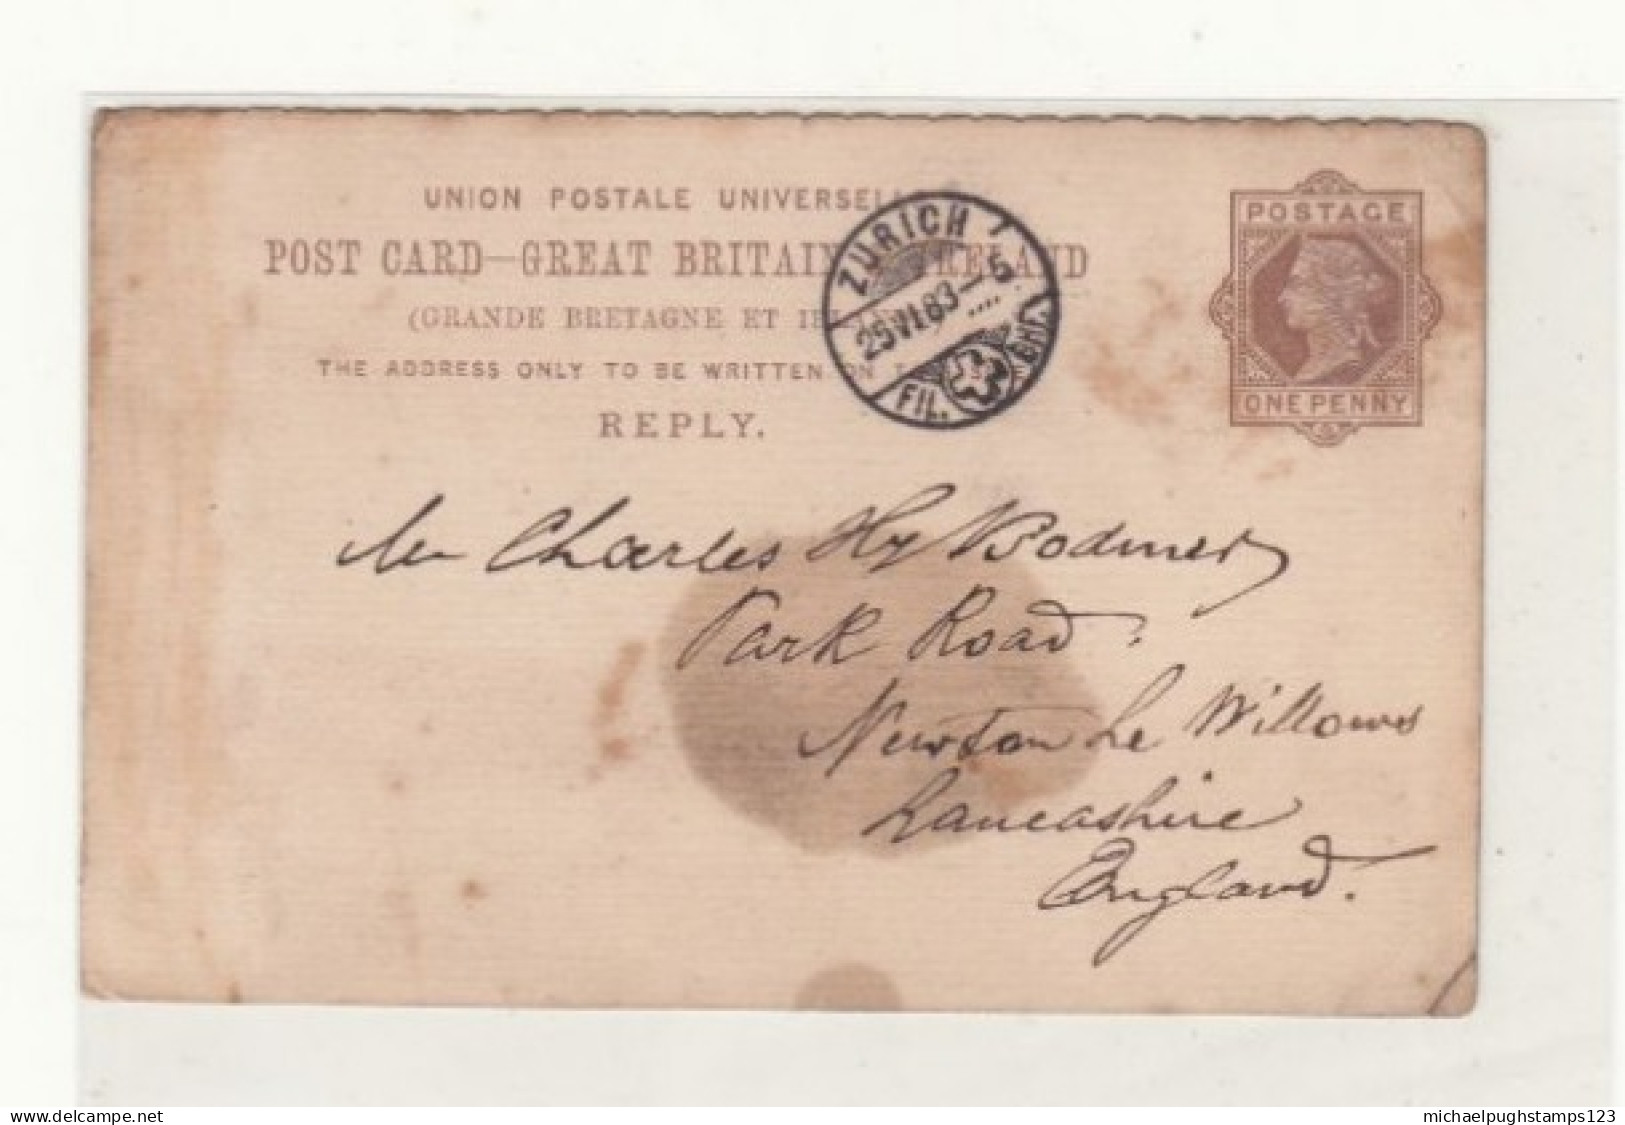 UNION POSTALE UNIVERSELLE
POST CARD—GREAT BRITAIN & IRELAND
(GRANDE BRETAGNE ET IRLANDE)
THE ADDRESS ONLY TO BE WRITTEN ON THIS SIDE
REPLY.
ZÜRICH 7
25 VI 83–5
FIL. BHF.
POSTAGE
ONE PENNY
Mr Charles Hy Bodmer
Park Road,
Newton Le Willows
Lancashire
England.
delcampe.net
michaelpughstamps123